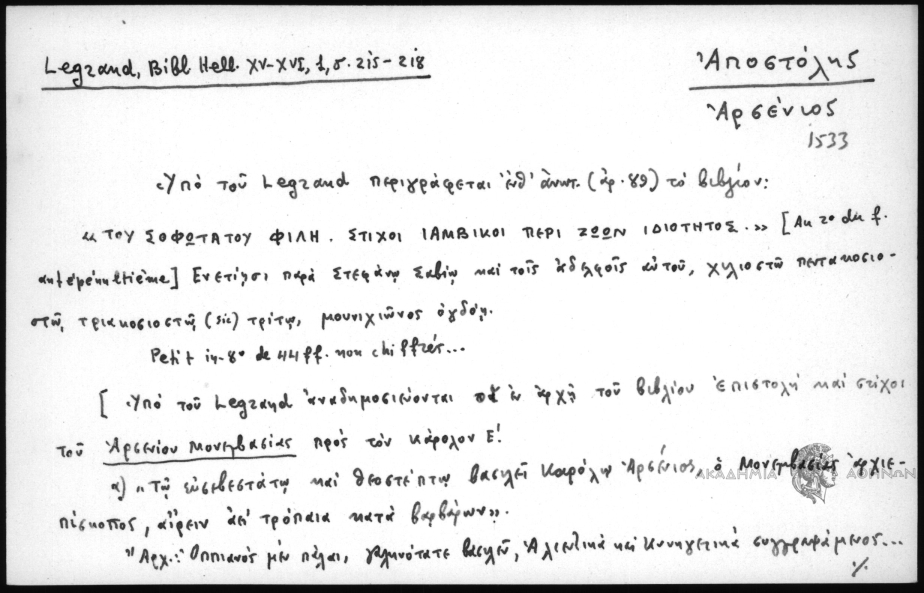 Legrand, Bibl Hell. XV-XVI, 1, σ. 215-218
Ἀποστόλης
Ἀρσένιος
1533
Ὑπὸ τοῦ Legrand περιγράφεται ὑπ' ἀριθ. (ἀρ. 89) τὸ βιβλίον:
« ΤΟΥ ΣΟΦΩΤΑΤΟΥ ΦΙΛΗ. ΣΤΙΧΟΙ ΙΑΜΒΙΚΟΙ ΠΕΡΙ ΖΩΩΝ ΙΔΙΟΤΗΤΟΣ.» [Au 2º du f.
antépénultième] Ενετίῃσι παρὰ Στεφάνῳ Σαβίῳ καὶ τοῖς ἀδελφοῖς αὐτοῦ, χιλιοστῶ πεντακοσιο-
στῶ, τριακοσιοστῶ, (sic) τρίτῳ, μουνιχιῶνος ὀγδόῃ.
Petit in-8º de 44 ff. non chiffrés...
[Ὑπὸ τοῦ Legrand ἀναδημοσιεύονται ἐν ἀρχῇ τοῦ βιβλίου ἐπιστολὴ καὶ στίχοι
τοῦ Ἀρσενίου Μονεμβασίας πρὸς τὸν Κάρολον Ε΄.
α) «Τῷ εὐσεβεστάτῳ καὶ θεοστέπτῳ βασιλεῖ Καρόλῳ Ἀρσένιος, ὁ Μονεμβασίας ἀρχιε-
πίσκοπος, αἴρειν ἀεὶ τρόπαια κατὰ βαρβάρων».
Ἀρχ.: Ὀππιανὸς μὲν πάλαι, γαληνότατε βασιλεῦ, Ἁλιευτικὰ καὶ Κυνηγετικὰ συγγραψάμενος...
./.
ΑΚΑΔΗΜΙΑ ΑΘΗΝΩΝ